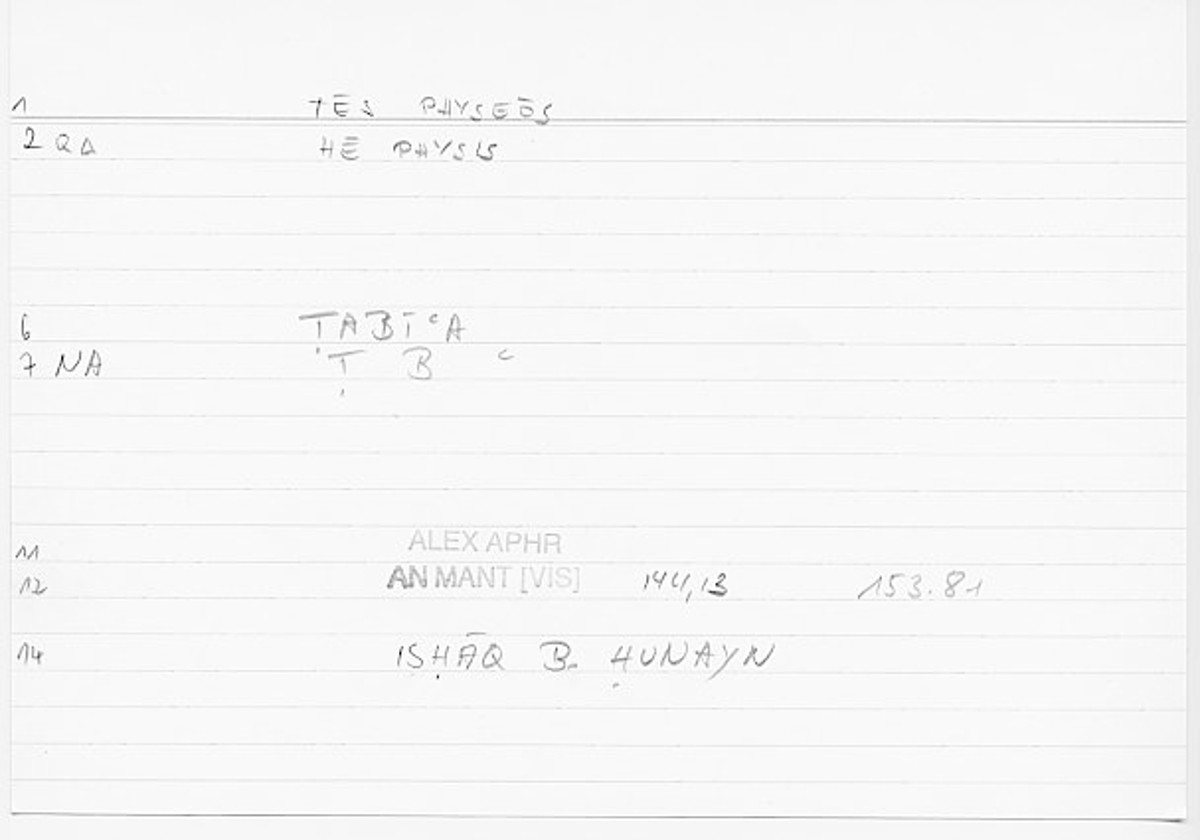 1 TĒS PHYSEŌS
2 QA HĒ PHYSIS
6 ṬABĪᶜA
7 NA Ṭ B ᶜ
11 ALEX APHR
12 AN MANT [VIS] 144,13 153.81
14 ISḤĀQ B. ḤUNAYN